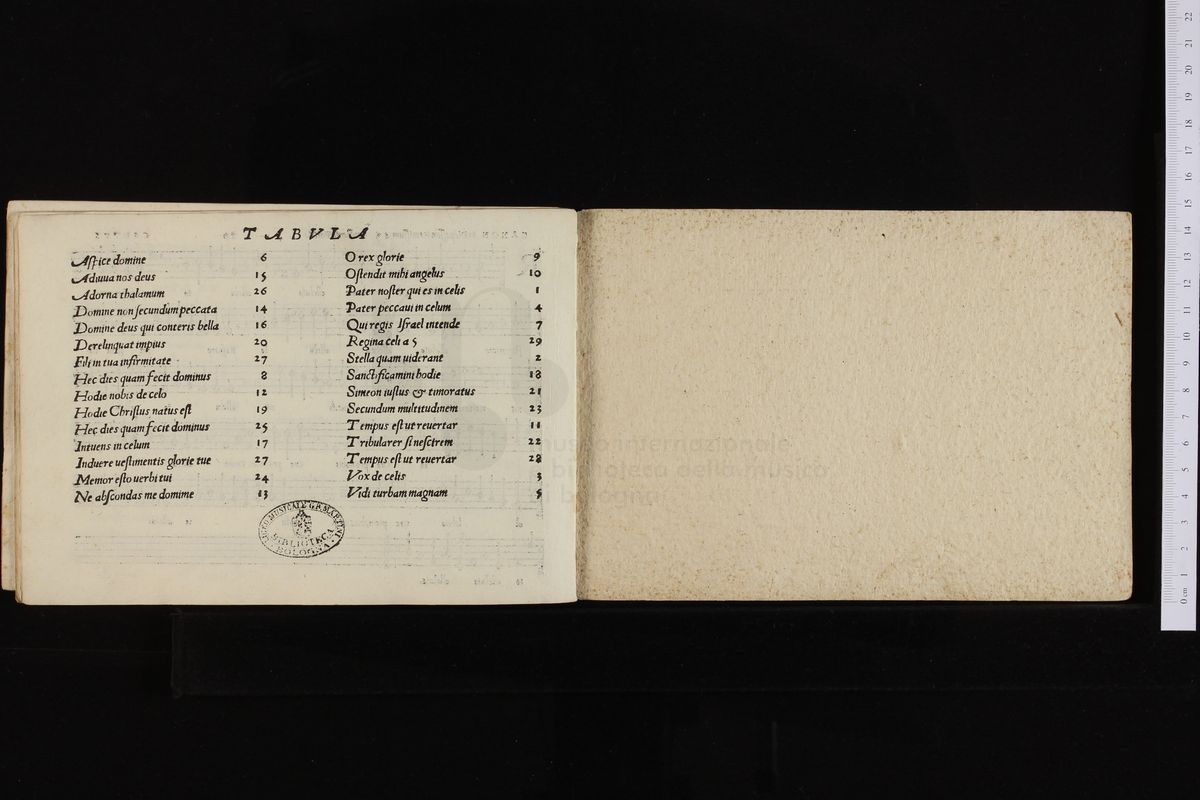 TABVLA
Aſpice domine 6
Adiuua nos deus 15
Adorna thalamum 26
Domine non ſecundum peccata 14
Domine deus qui conteris bella 16
Derelinquat impius 20
Fili in tua infirmitate 27
Hec dies quam fecit dominus 8
Hodie nobis de celo 12
Hodie Chriſtus natus eſt 19
Hec dies quam fecit dominus 25
Intuens in celum 17
Induere ueſtimentis glorie tue 27
Memor eſto uerbi tui 24
Ne abſcondas me domine 13
O rex glorie 9
Oſtendit mihi angelus 10
Pater noſter qui es in celis 1
Pater peccaui in celum 4
Qui regis Iſrael intende 7
Regina celi a 5 29
Stella quam uiderant 2
Sanctificamini hodie 18
Simeon iuſtus & timoratus 21
Secundum multitudinem 23
Tempus eſt ut reuertar 11
Tribularer ſi neſcirem 22
Tempus eſt ut reuertar 28
Vox de celis 3
Vidi turbam magnam 5
LICEO MUSICALE G.B. MARTINI
BIBLIOTECA
BOLOGNA
museo internazionale
e biblioteca della musica
di bologna
0 cm 1 2 3 4 5 6 7 8 9 10 11 12 13 14 15 16 17 18 19 20 21 22